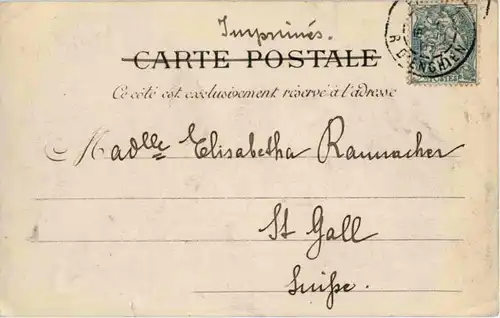 Imprimés.
CARTE POSTALE
Ce côté est exclusivement réservé à l'adresse
R. D'ENGHIEN
Madlle Elisabetha Rammacher
St Gall
Suisse.